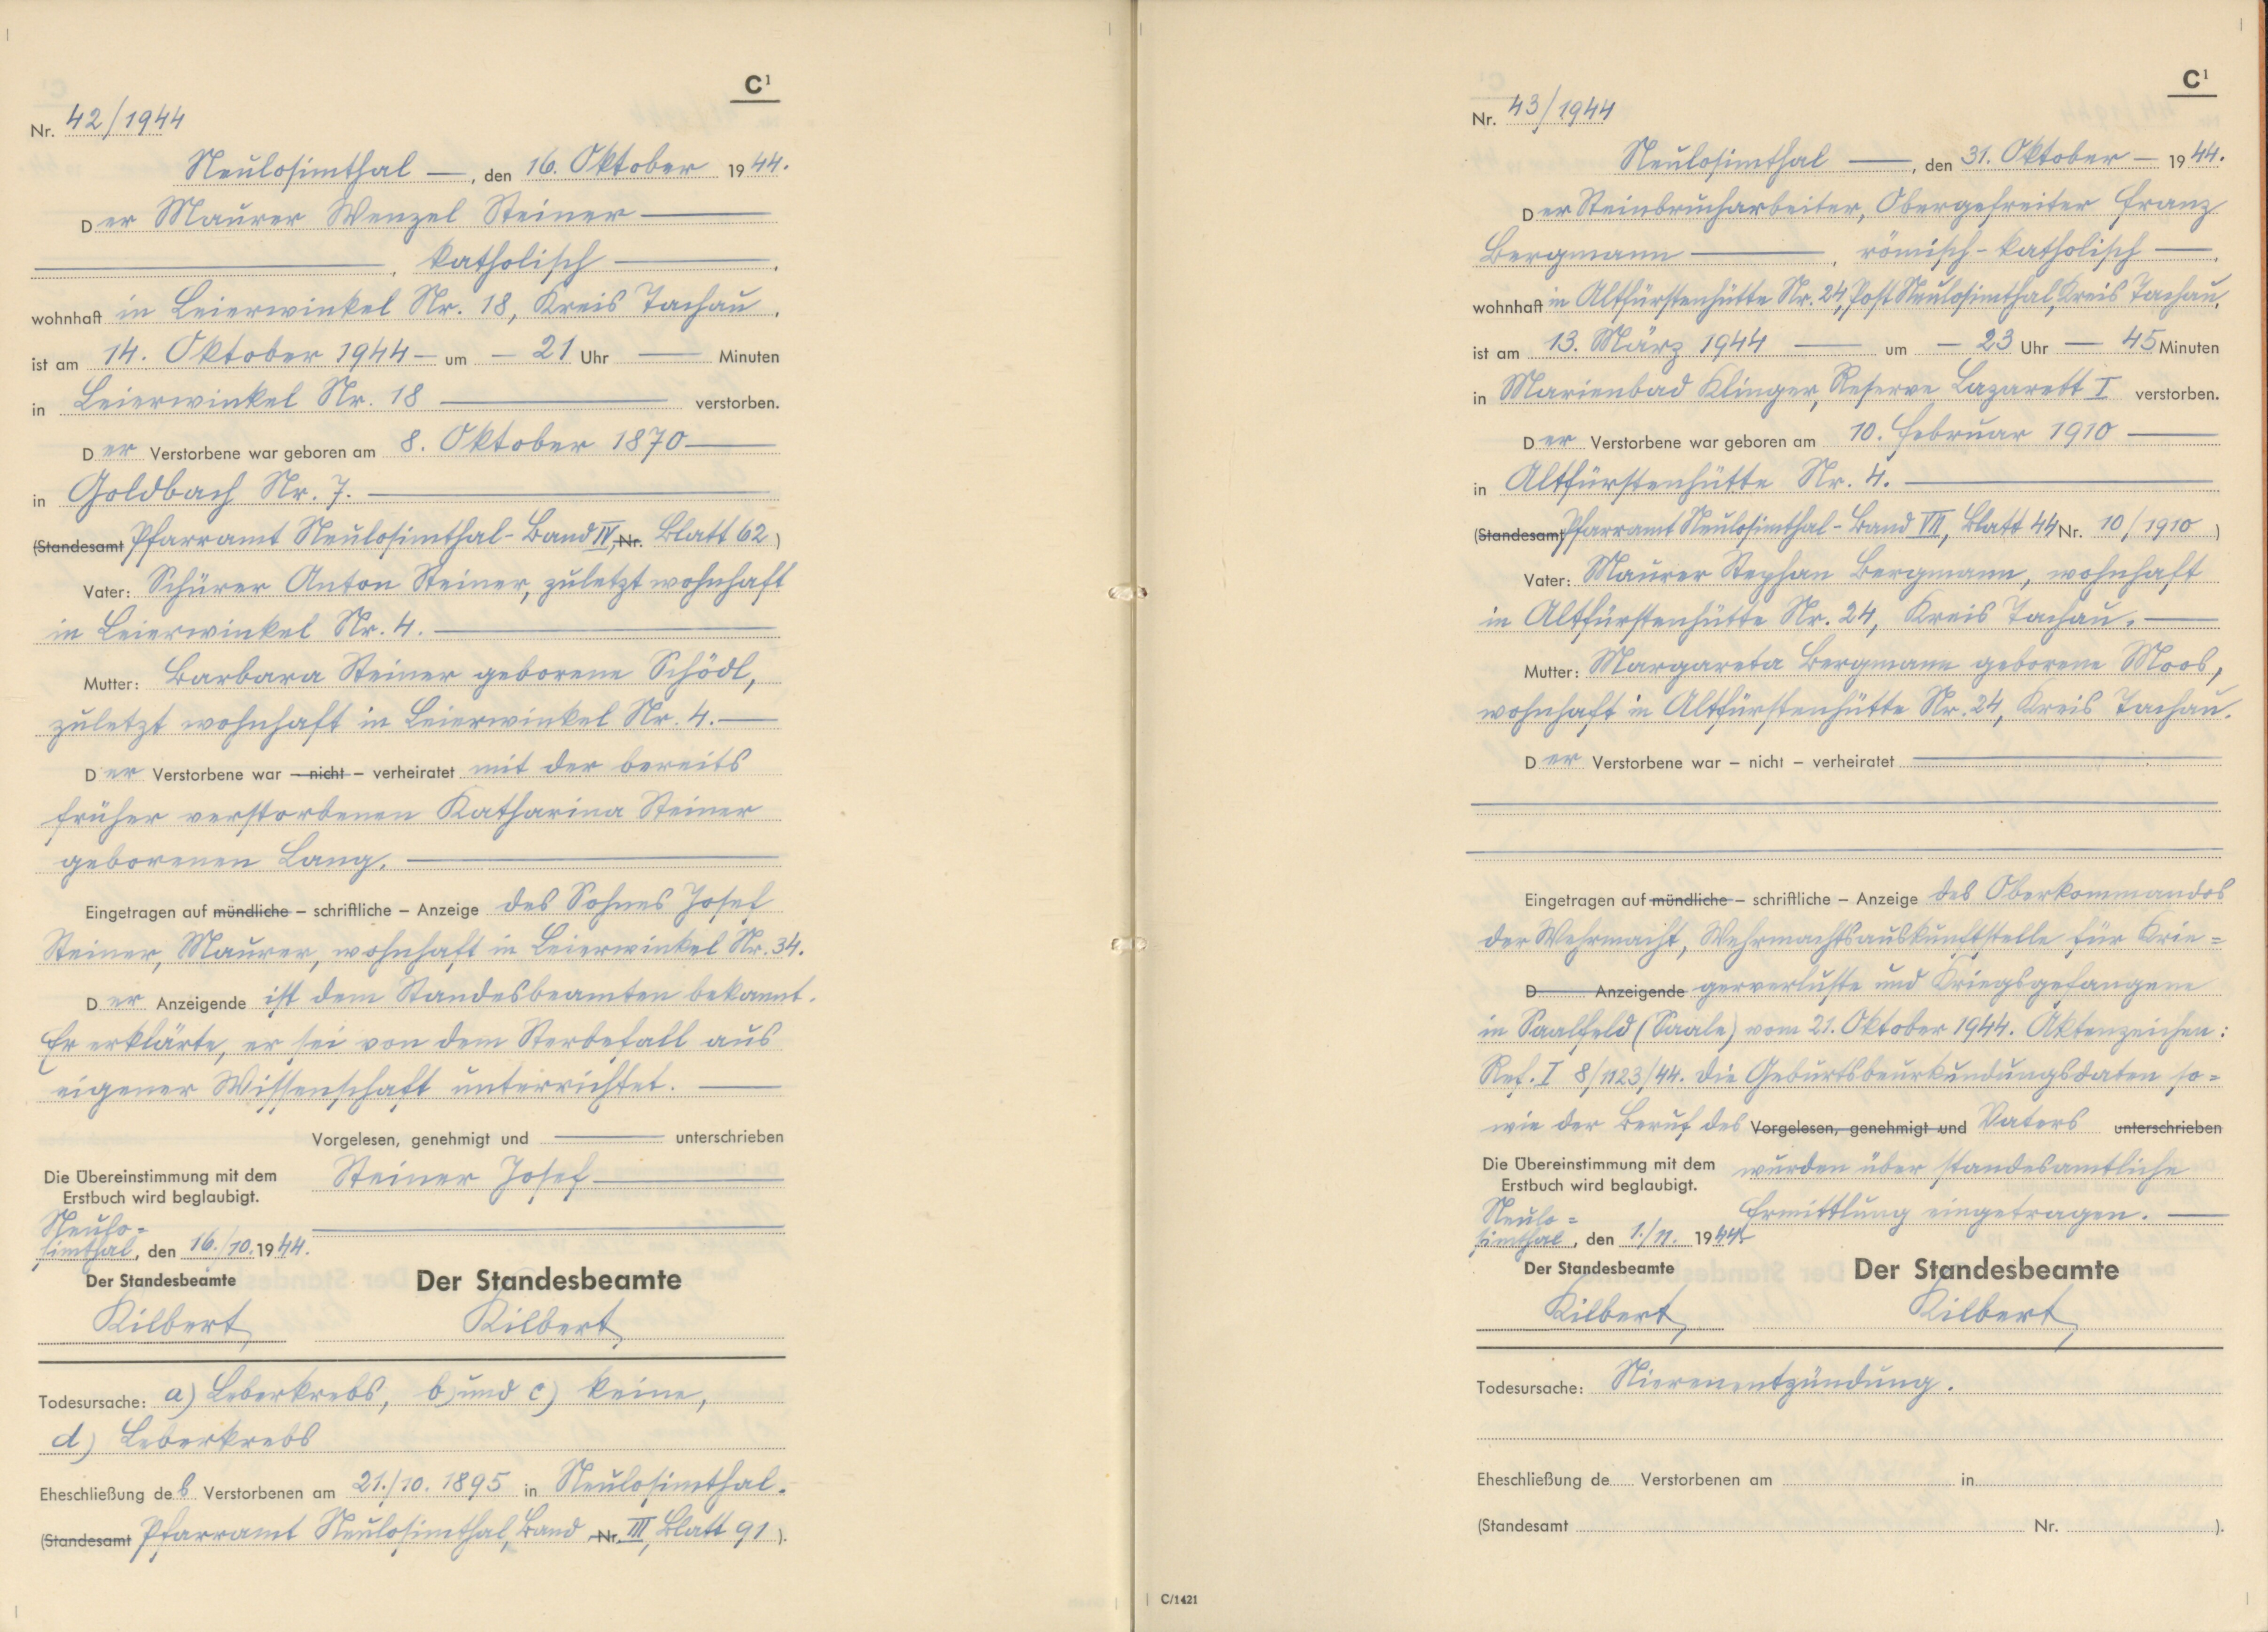 C¹
Nr. 42/1944
Neulosimthal —, den 16. Oktober 1944.
Der Maurer Wenzel Steiner —
—, katholisch —,
wohnhaft in Leierwinkel Nr. 18, Kreis Tachau,
ist am 14. Oktober 1944 — um — 21 Uhr — Minuten
in Leierwinkel Nr. 18 — verstorben.
Der Verstorbene war geboren am 8. Oktober 1870 —
in Goldbach Nr. 7. —
(Standesamt Pfarramt Neulosimthal - Band IV, Nr. Blatt 62)
Vater: Schürer Anton Steiner, zuletzt wohnhaft
in Leierwinkel Nr. 4. —
Mutter: Barbara Steiner geborene Schödl,
zuletzt wohnhaft in Leierwinkel Nr. 4. —
Der Verstorbene war – nicht – verheiratet mit der bereits
früher verstorbenen Katharina Steiner
geborenen Lang. —
Eingetragen auf mündliche – schriftliche – Anzeige des Sohnes Josef
Steiner, Maurer, wohnhaft in Leierwinkel Nr. 34.
Der Anzeigende ist dem Standesbeamten bekannt.
Er erklärte, er sei von dem Sterbefall aus
eigener Wissenschaft unterrichtet. —
Vorgelesen, genehmigt und — unterschrieben
Die Übereinstimmung mit dem
Erstbuch wird beglaubigt.
Steiner Josef —
Neulo-
simthal, den 16./10. 1944.
Der Standesbeamte
Der Standesbeamte
Kilbert
Kilbert
Todesursache: a) Leberkrebs, b) und c) keine,
d) Leberkrebs
Eheschließung des Verstorbenen am 21./10. 1895 in Neulosimthal.
(Standesamt Pfarramt Neulosimthal, Band Nr. III, Blatt 91).
C¹
Nr. 43/1944
Neulosimthal —, den 31. Oktober — 1944.
Der Steinbrucharbeiter, Obergefreiter Franz
Bergmann —, römisch-katholisch —,
wohnhaft in Altfürstenhütte Nr. 24, Post Neulosimthal, Kreis Tachau,
ist am 13. März 1944 — um — 23 Uhr — 45 Minuten
in Marienbad Klinger, Reserve Lazarett I verstorben.
Der Verstorbene war geboren am 10. Februar 1910 —
in Altfürstenhütte Nr. 4. —
(Standesamt Pfarramt Neulosimthal - Band VII, Blatt 44 Nr. 10/1910)
Vater: Maurer Stephan Bergmann, wohnhaft
in Altfürstenhütte Nr. 24, Kreis Tachau. —
Mutter: Margareta Bergmann geborene Moos,
wohnhaft in Altfürstenhütte Nr. 24, Kreis Tachau.
Der Verstorbene war – nicht – verheiratet —
Eingetragen auf mündliche – schriftliche – Anzeige des Oberkommandos
der Wehrmacht, Wehrmachtsauskunftstelle für Krie=
D Anzeigende gerverluste und Kriegsgefangene
in Saalfeld (Saale) vom 21. Oktober 1944. Aktenzeichen:
Ref. I 8/1123/44. Die Geburtsbeurkundungsdaten so=
wie der Beruf des Vorgelesen, genehmigt und Vaters unterschrieben
Die Übereinstimmung mit dem
Erstbuch wird beglaubigt.
wurden über standesamtliche
Ermittlung eingetragen. —
Neulo=
simthal, den 1./11. 1944.
Der Standesbeamte
Der Standesbeamte
Kilbert
Kilbert
Todesursache: Nierenentzündung.
Eheschließung de Verstorbenen am in
(Standesamt Nr. ).
C/1421